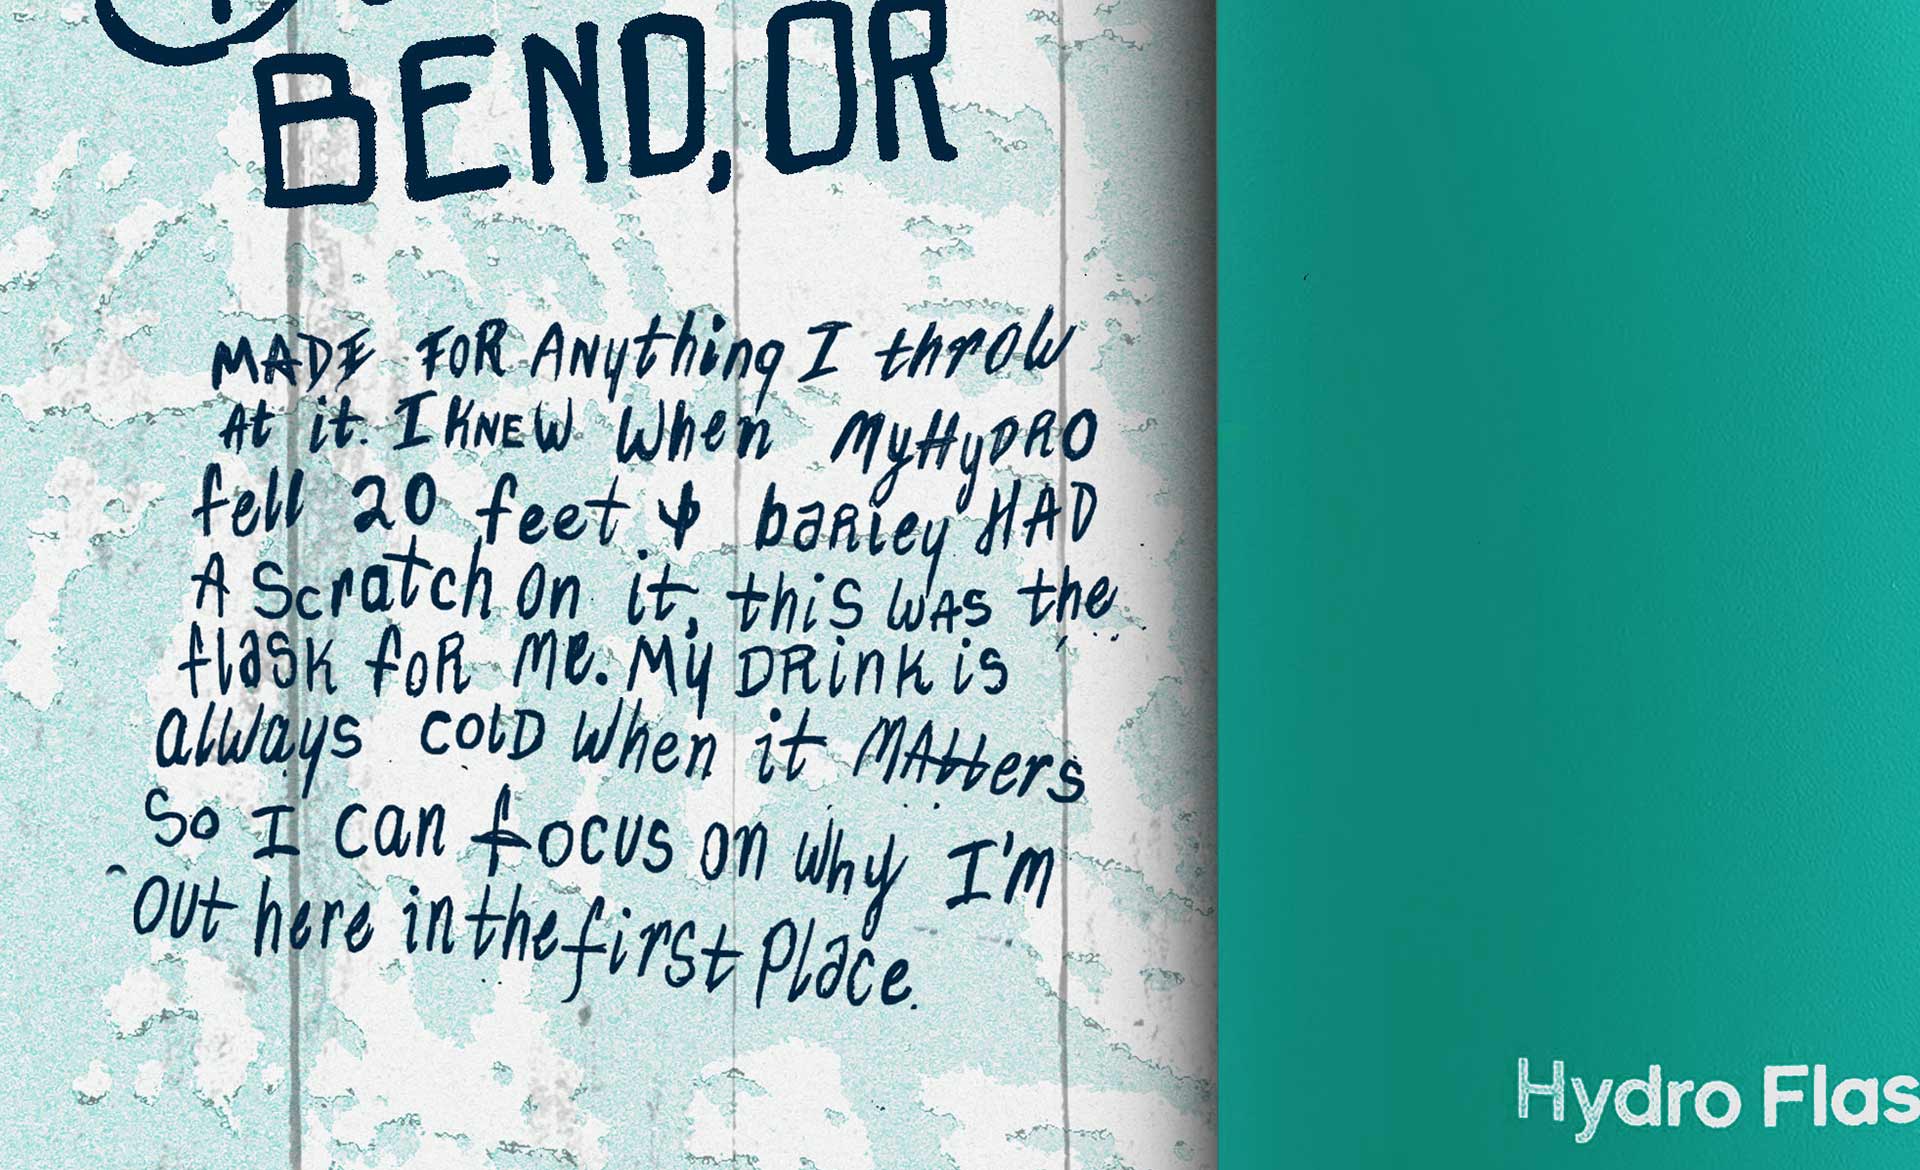 BEND, OR
MADE FOR ANything I throw
At it. I KNEW When MyHyDRO
fell 20 feet & barley HAD
A Scratch on it, this was the
flask for me. My DRink is
always colD when it MAtters
So I can focus on why I'm
out here in the first Place.
Hydro Flas